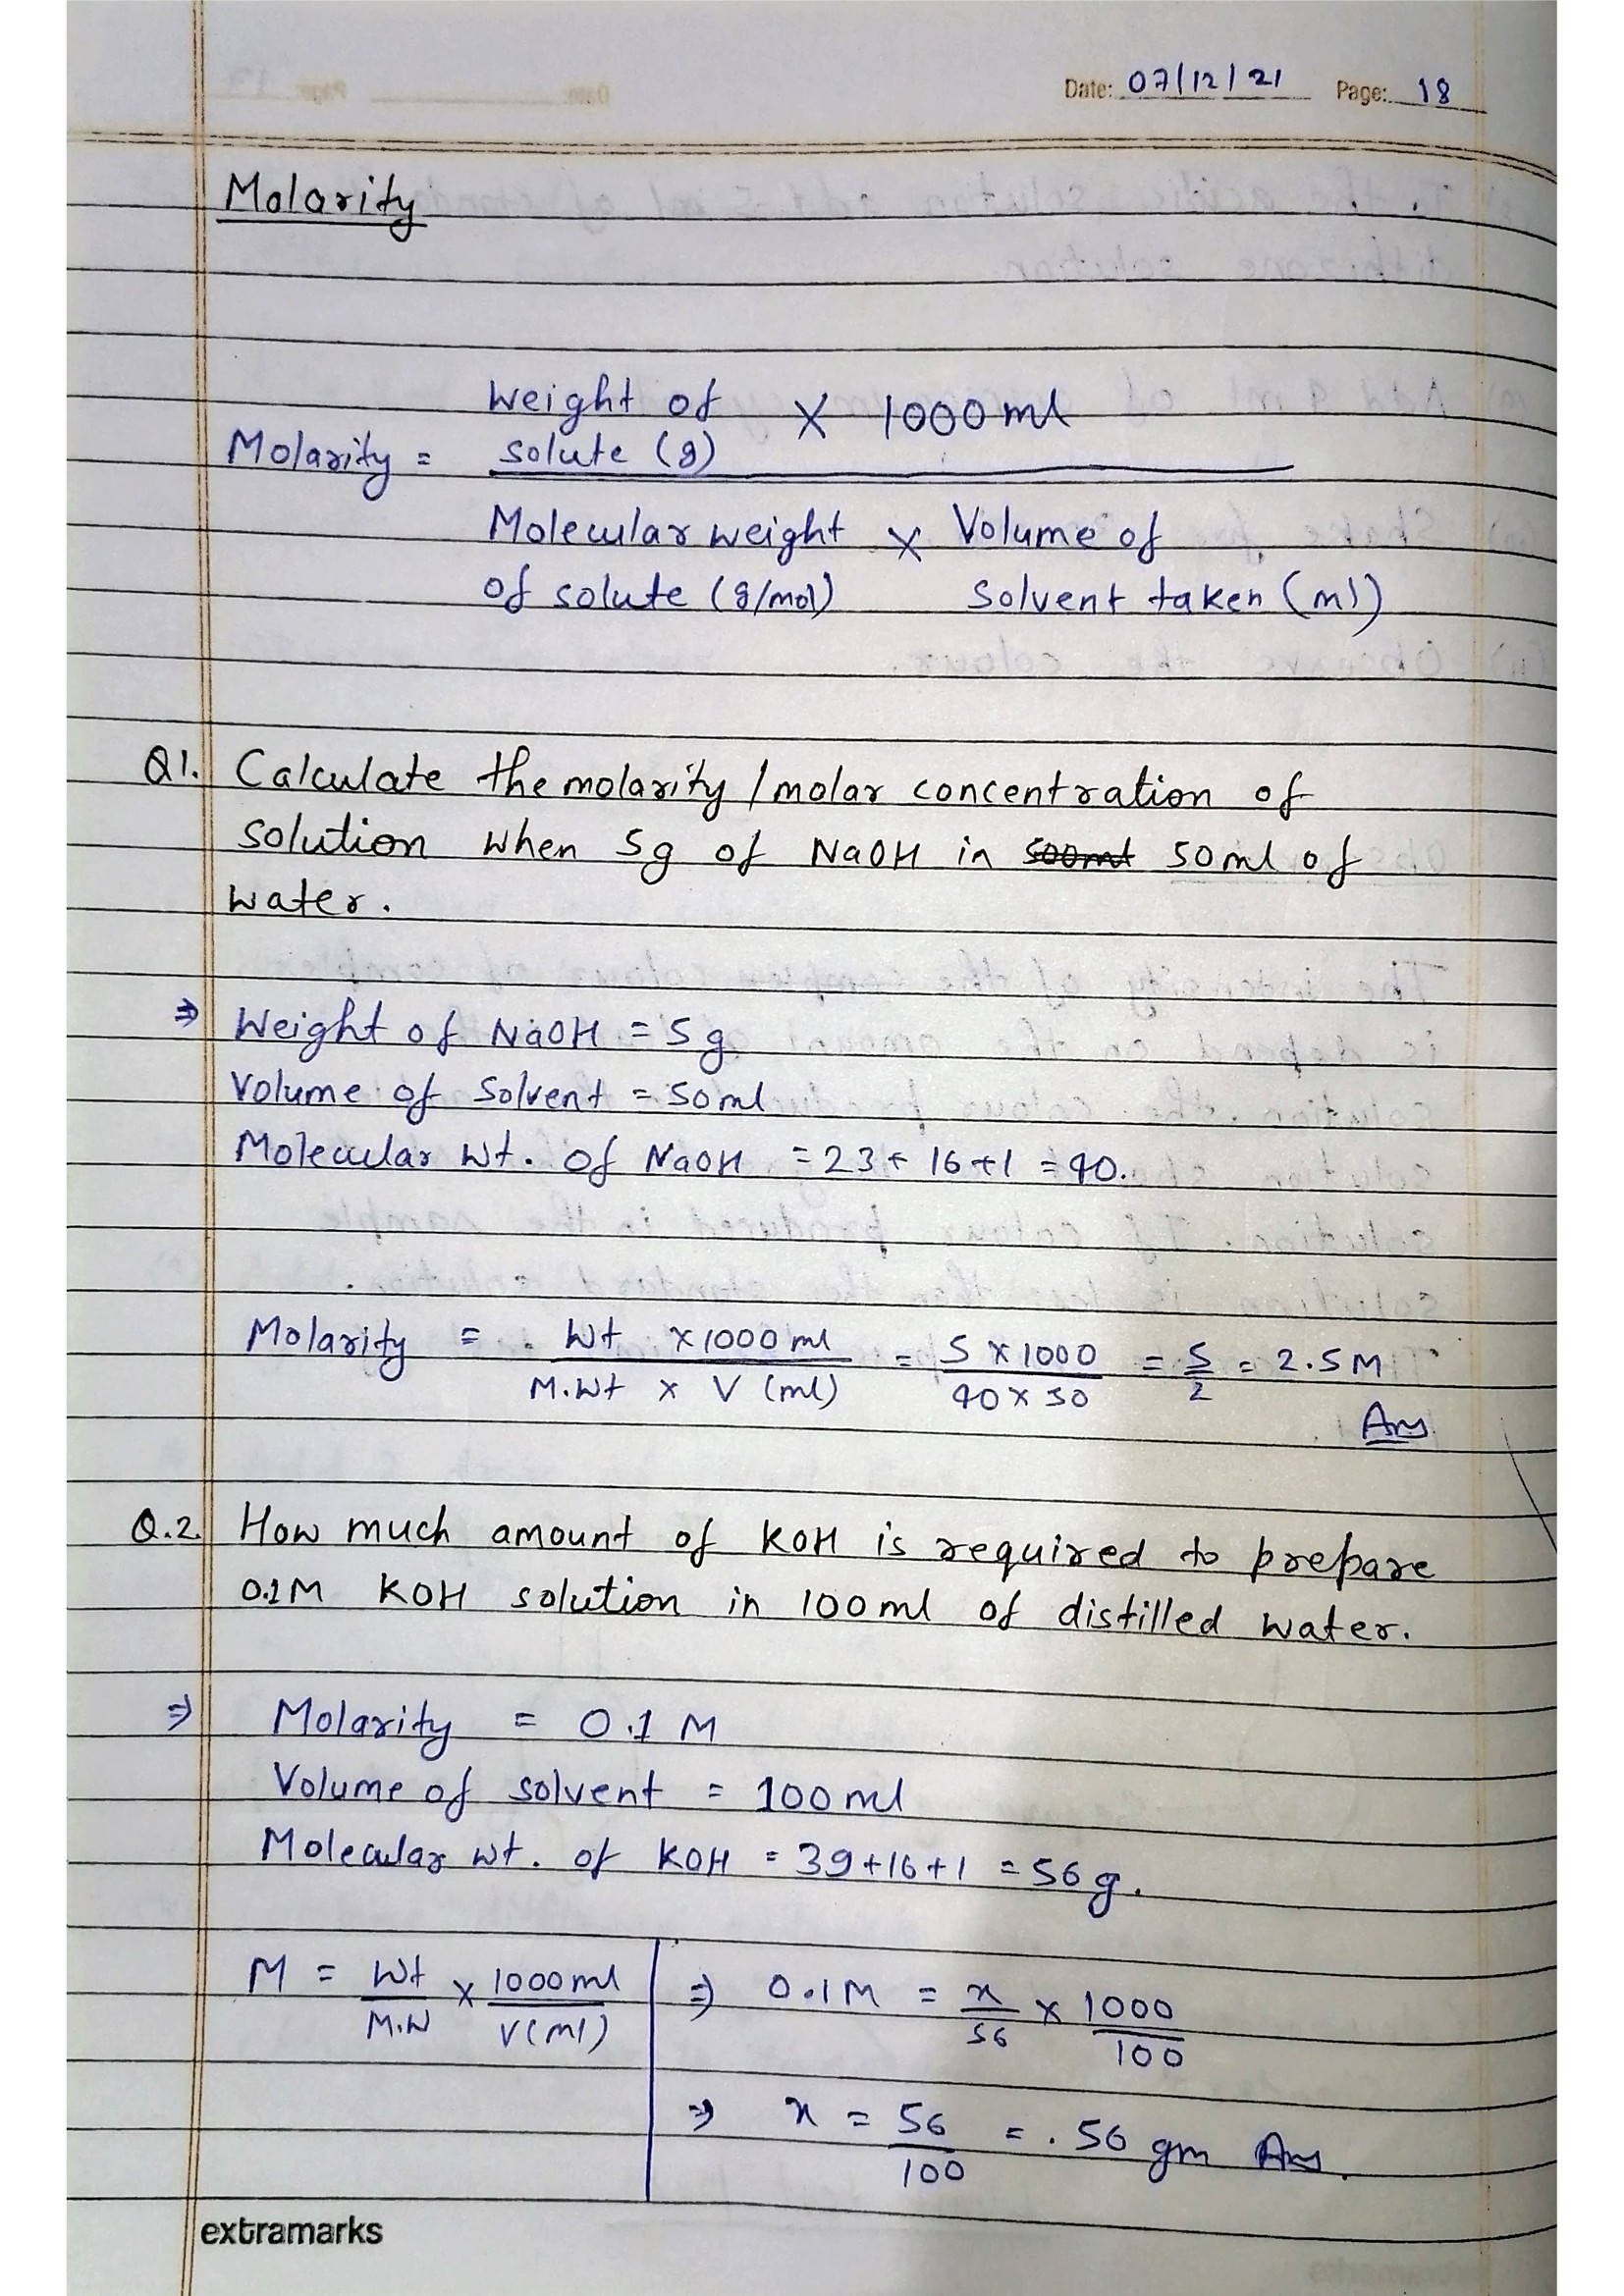 Date: 07/12/21 Page: 18
Molarity
Weight of
solute (g) × 1000ml
Molarity =
Molecular weight × Volume of
of solute (g/mol) Solvent taken (ml)
Q1. Calculate the molarity / molar concentration of
solution when 5g of NaOH in 500ml 50ml of
water.
⇒ Weight of NaOH = 5g
Volume of Solvent = 50ml
Molecular wt. of NaOH = 23 + 16 + 1 = 40.
Molarity = Wt × 1000 ml / M.Wt × V (ml) = 5 × 1000 / 40 × 50 = 5/2 = 2.5 M
Ans
Q.2. How much amount of KOH is required to prepare
0.1M KOH solution in 100ml of distilled water.
⇒ Molarity = 0.1 M
Volume of solvent = 100ml
Molecular wt. of KOH = 39+16+1 = 56g.
M = Wt/M.W × 1000ml/V(ml) ⇒ 0.1M = x/56 × 1000/100
⇒ x = 56/100 = .56 gm Ans.
extramarks